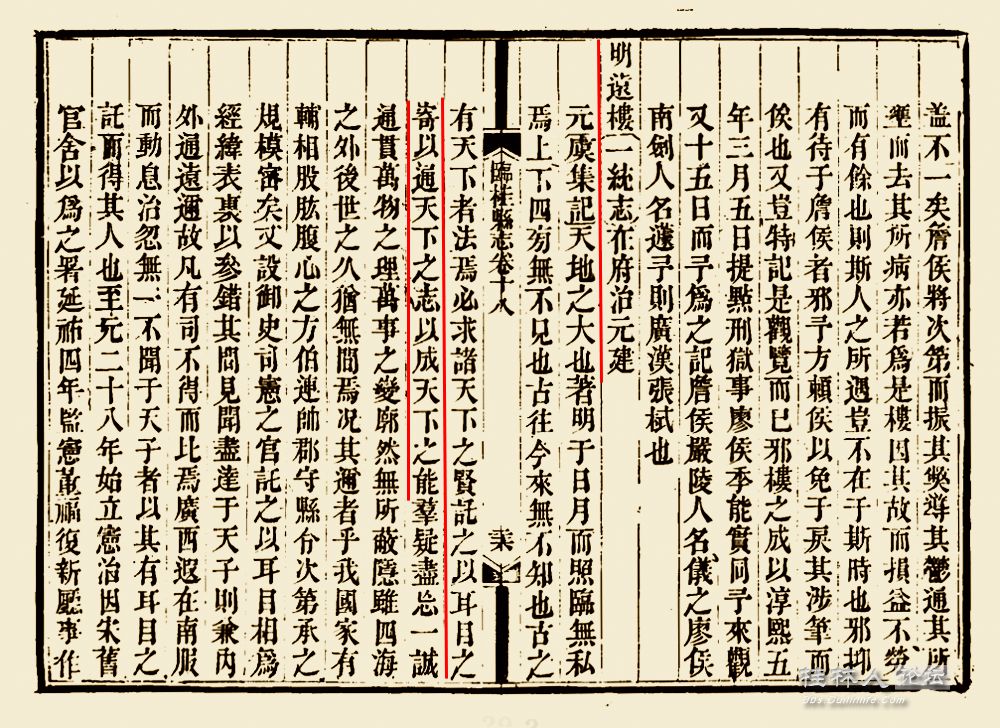 盖不一矣詹侯將次第而振其獘導其鬱通其所
壅而去其所病亦若爲是樓因其故而損益不勞
而有餘也則斯人之所遇豈不在于斯時也邪抑
有待于詹侯者邪予方賴侯以免于戾其涉筆而
俟也又豈特記是觀覽而已邪樓之成以淳熙五
年三月五日提點刑獄事廖侯季能實同予來觀
又十五日而予爲之記詹侯嚴陵人名儀之廖侯
南劍人名蘧予則廣漢張栻也
明遠樓一統志在府治元建
元虞集記天地之大也著明于日月而照臨無私
焉上下四旁無不見也古往今來無不知也古之
臨桂縣志卷十八
有天下者法焉必求諸天下之賢託之以耳目之
寄以通天下之志以成天下之能羣疑盡忘一誠
通貫萬物之理萬事之變廓然無所蔽隱雖四海
之外後世之久猶無間焉况其邇者乎我國家有
輔相股肱腹心之方伯連帥郡守縣令次第承之
規模審矣又設御史司憲之官託之以耳目相爲
經緯表裏以參錯其間見聞盡達于天子則兼内
外通遠邇故凡有司不得而比焉廣西遐在南服
而動息治忽無一不聞于天子者以其有耳目之
託而得其人也至元二十八年始立憲治因宋舊
官舍以爲之署延祐四年監憲董福復新廳事作
桂林人论坛
bbs.guilinlife.com